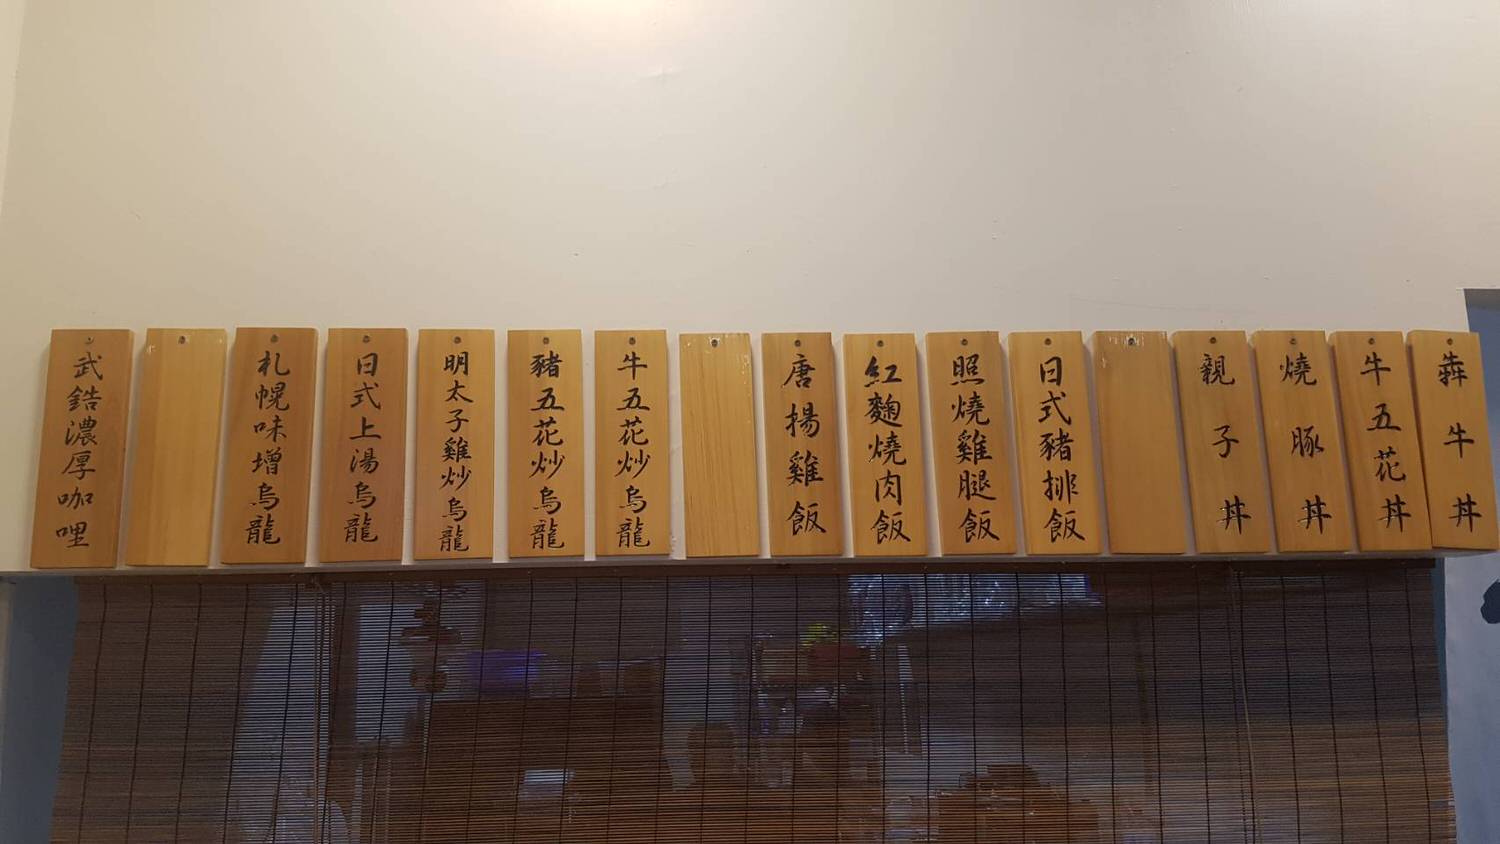 犇牛丼
牛五花丼
燒豚丼
親子丼
日式豬排飯
照燒雞腿飯
紅麴燒肉飯
唐揚雞飯
牛五花炒烏龍
豬五花炒烏龍
明太子雞炒烏龍
日式上湯烏龍
札幌味增烏龍
武鋯濃厚咖哩